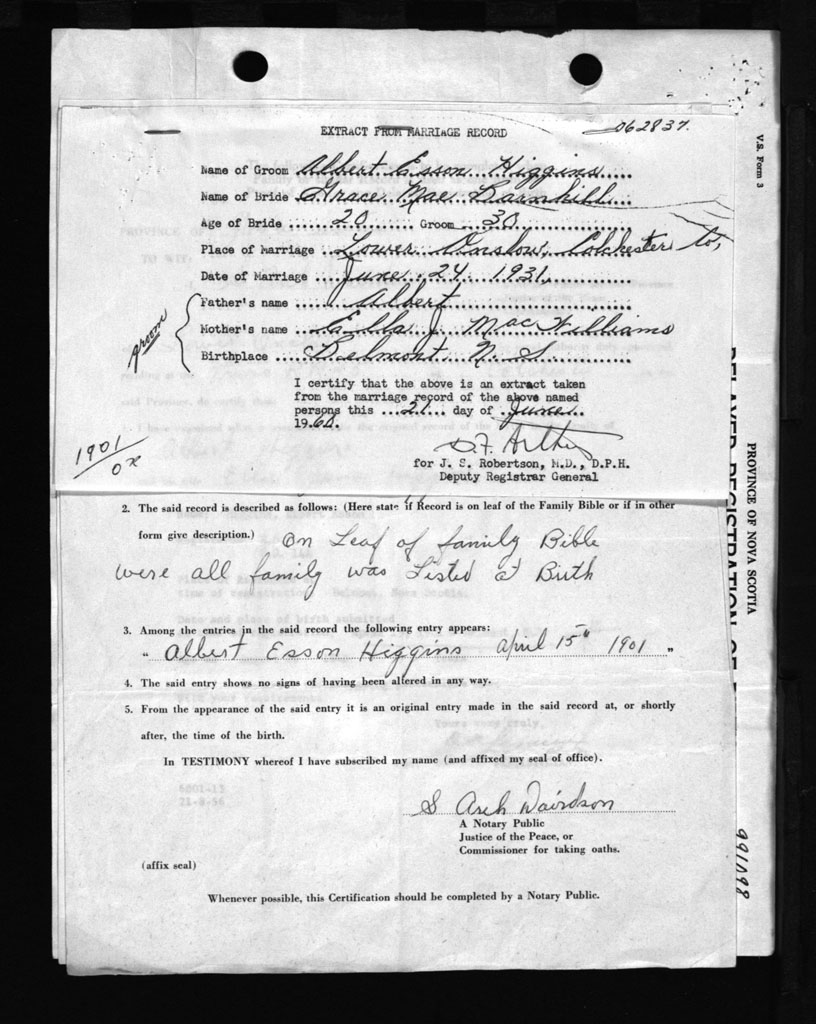 EXTRACT FROM MARRIAGE RECORD
062837.
Name of Groom Albert Esson Higgins
Name of Bride Grace Mae Barnhill
Age of Bride 20 Groom 30
Place of Marriage Lower Onslow, Colchester Co,
Date of Marriage June 24 1931,
Groom
Father's name Albert
Mother's name Ella J. MacWilliams
Birthplace Belmont N. S.
I certify that the above is an extract taken
from the marriage record of the above named
persons this 21 day of June
1960.
1901/OK
for J. S. Robertson, M.D., D.P.H.
Deputy Registrar General
2. The said record is described as follows: (Here state if Record is on leaf of the Family Bible or if in other
form give description.) On Leaf of family Bible
were all family was Listed at Birth
3. Among the entries in the said record the following entry appears:
" Albert Esson Higgins April 15th 1901 "
4. The said entry shows no signs of having been altered in any way.
5. From the appearance of the said entry it is an original entry made in the said record at, or shortly
after, the time of the birth.
In TESTIMONY whereof I have subscribed my name (and affixed my seal of office).
6001-13
21-8-56
S Arch Davidson
A Notary Public
Justice of the Peace, or
Commissioner for taking oaths.
(affix seal)
Whenever possible, this Certification should be completed by a Notary Public.
V.S. Form 3
PROVINCE OF NOVA SCOTIA